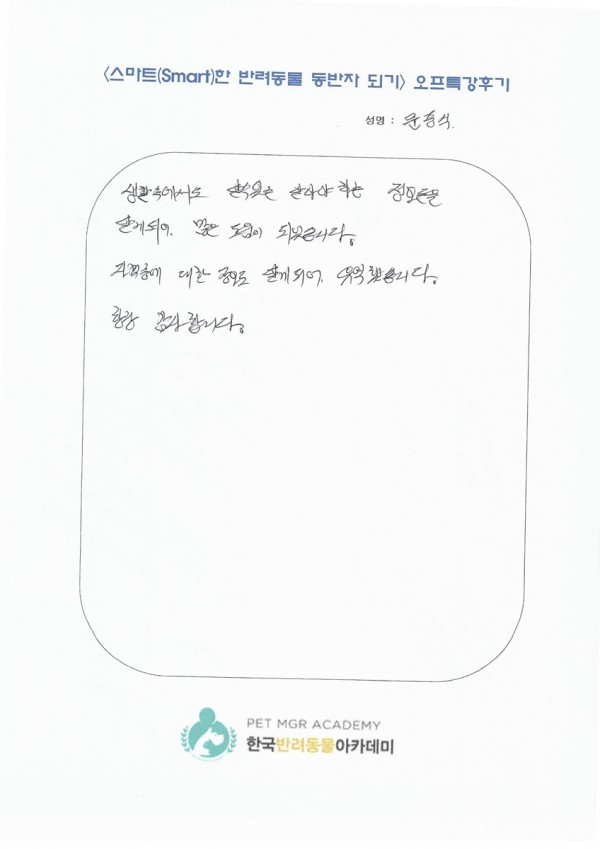 <스마트(Smart)한 반려동물 동반자 되기> 오프특강후기
성명 : 윤
생활속에서도 알아야 하는 정보들을
알게되어, 많은 도움이 되었습니다.
자격증에 대한 정보도 알게되어, 유익했습니다.
항상 감사합니다.
PET MGR ACADEMY
한국반려동물아카데미